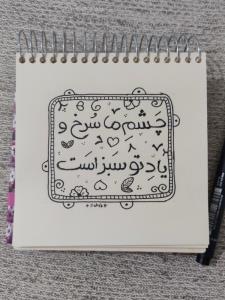 چَشم ما سُرخ و
یادِ تو سَبز است